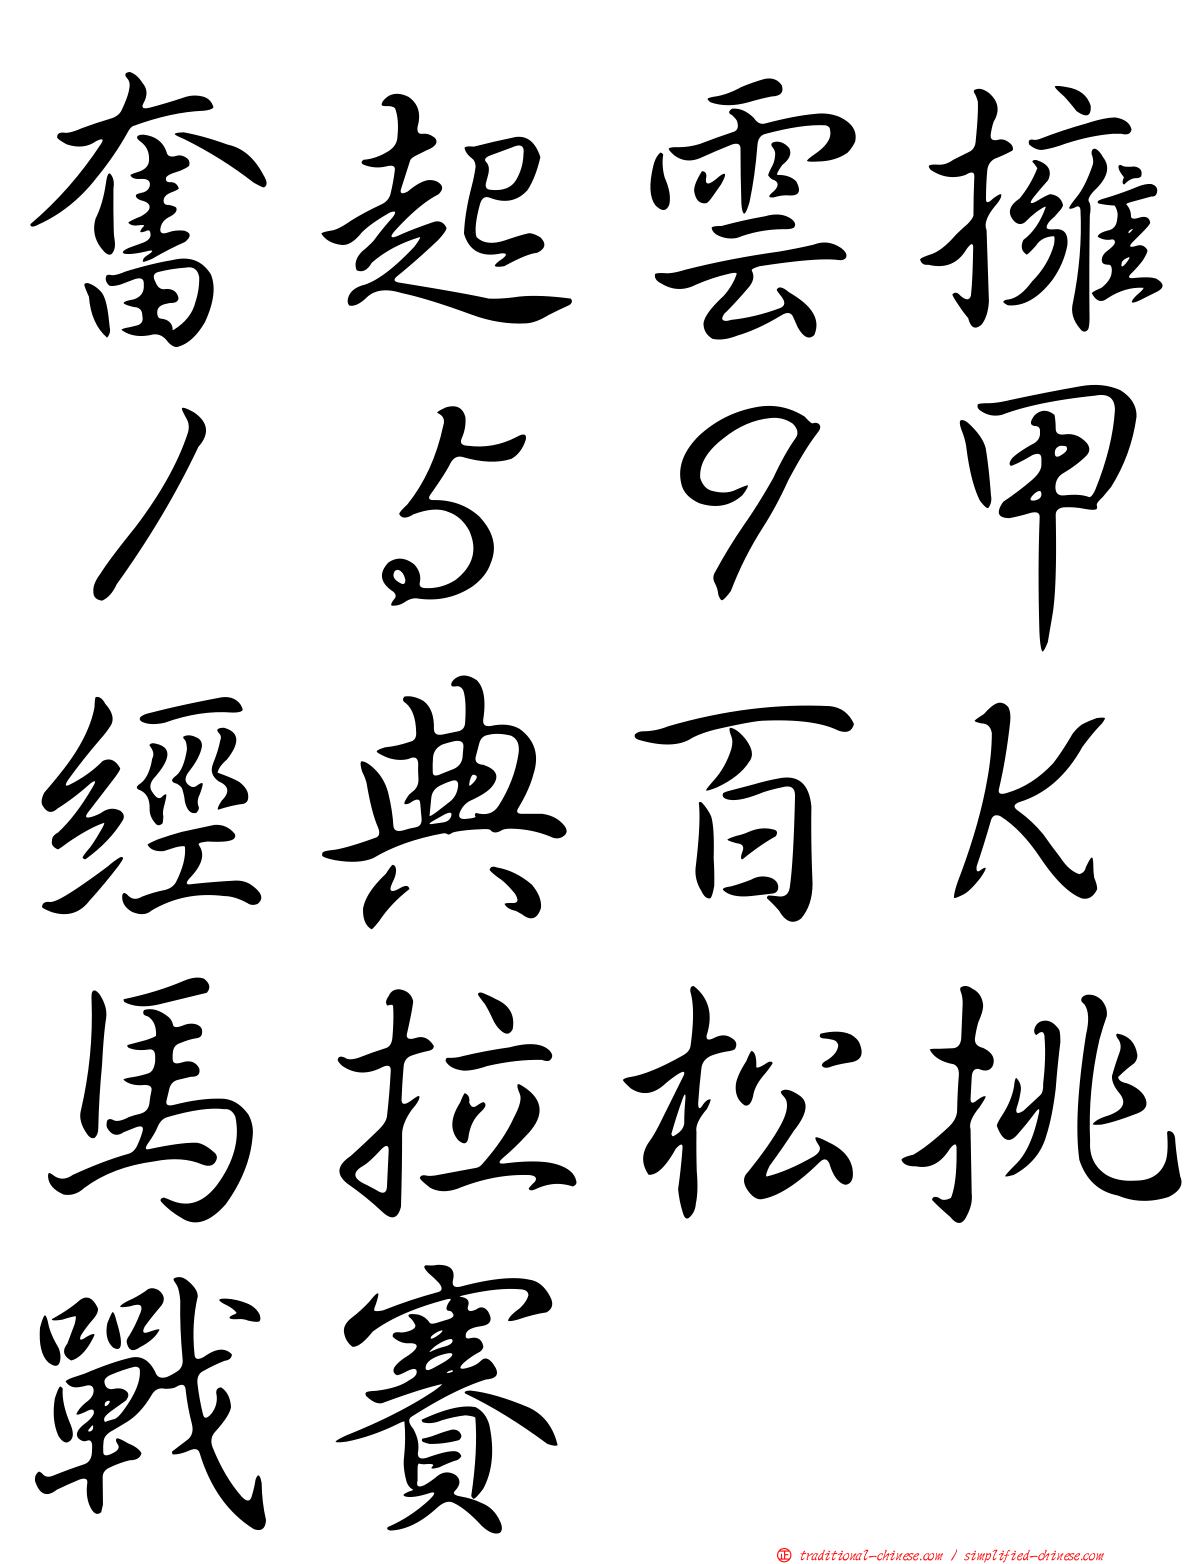 奮起雲擁
159甲
經典百K
馬拉松挑
戰賽
正 traditional-chinese.com / simplified-chinese.com